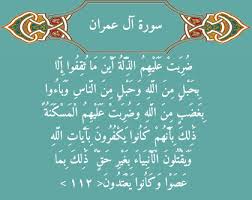 سورة آل عمران
ضُرِبَتْ عَلَيْهِمُ الذِّلَّةُ أَيْنَ مَا ثُقِفُوا إِلَّا
بِحَبْلٍ مِنَ اللَّهِ وَحَبْلٍ مِنَ النَّاسِ وَبَاءُوا
بِغَضَبٍ مِنَ اللَّهِ وَضُرِبَتْ عَلَيْهِمُ الْمَسْكَنَةُ
ذَلِكَ بِأَنَّهُمْ كَانُوا يَكْفُرُونَ بِآيَاتِ اللَّهِ
وَيَقْتُلُونَ الْأَنْبِيَاءَ بِغَيْرِ حَقٍّ ذَلِكَ بِمَا
عَصَوْا وَكَانُوا يَعْتَدُونَ >
< ١١٢ >